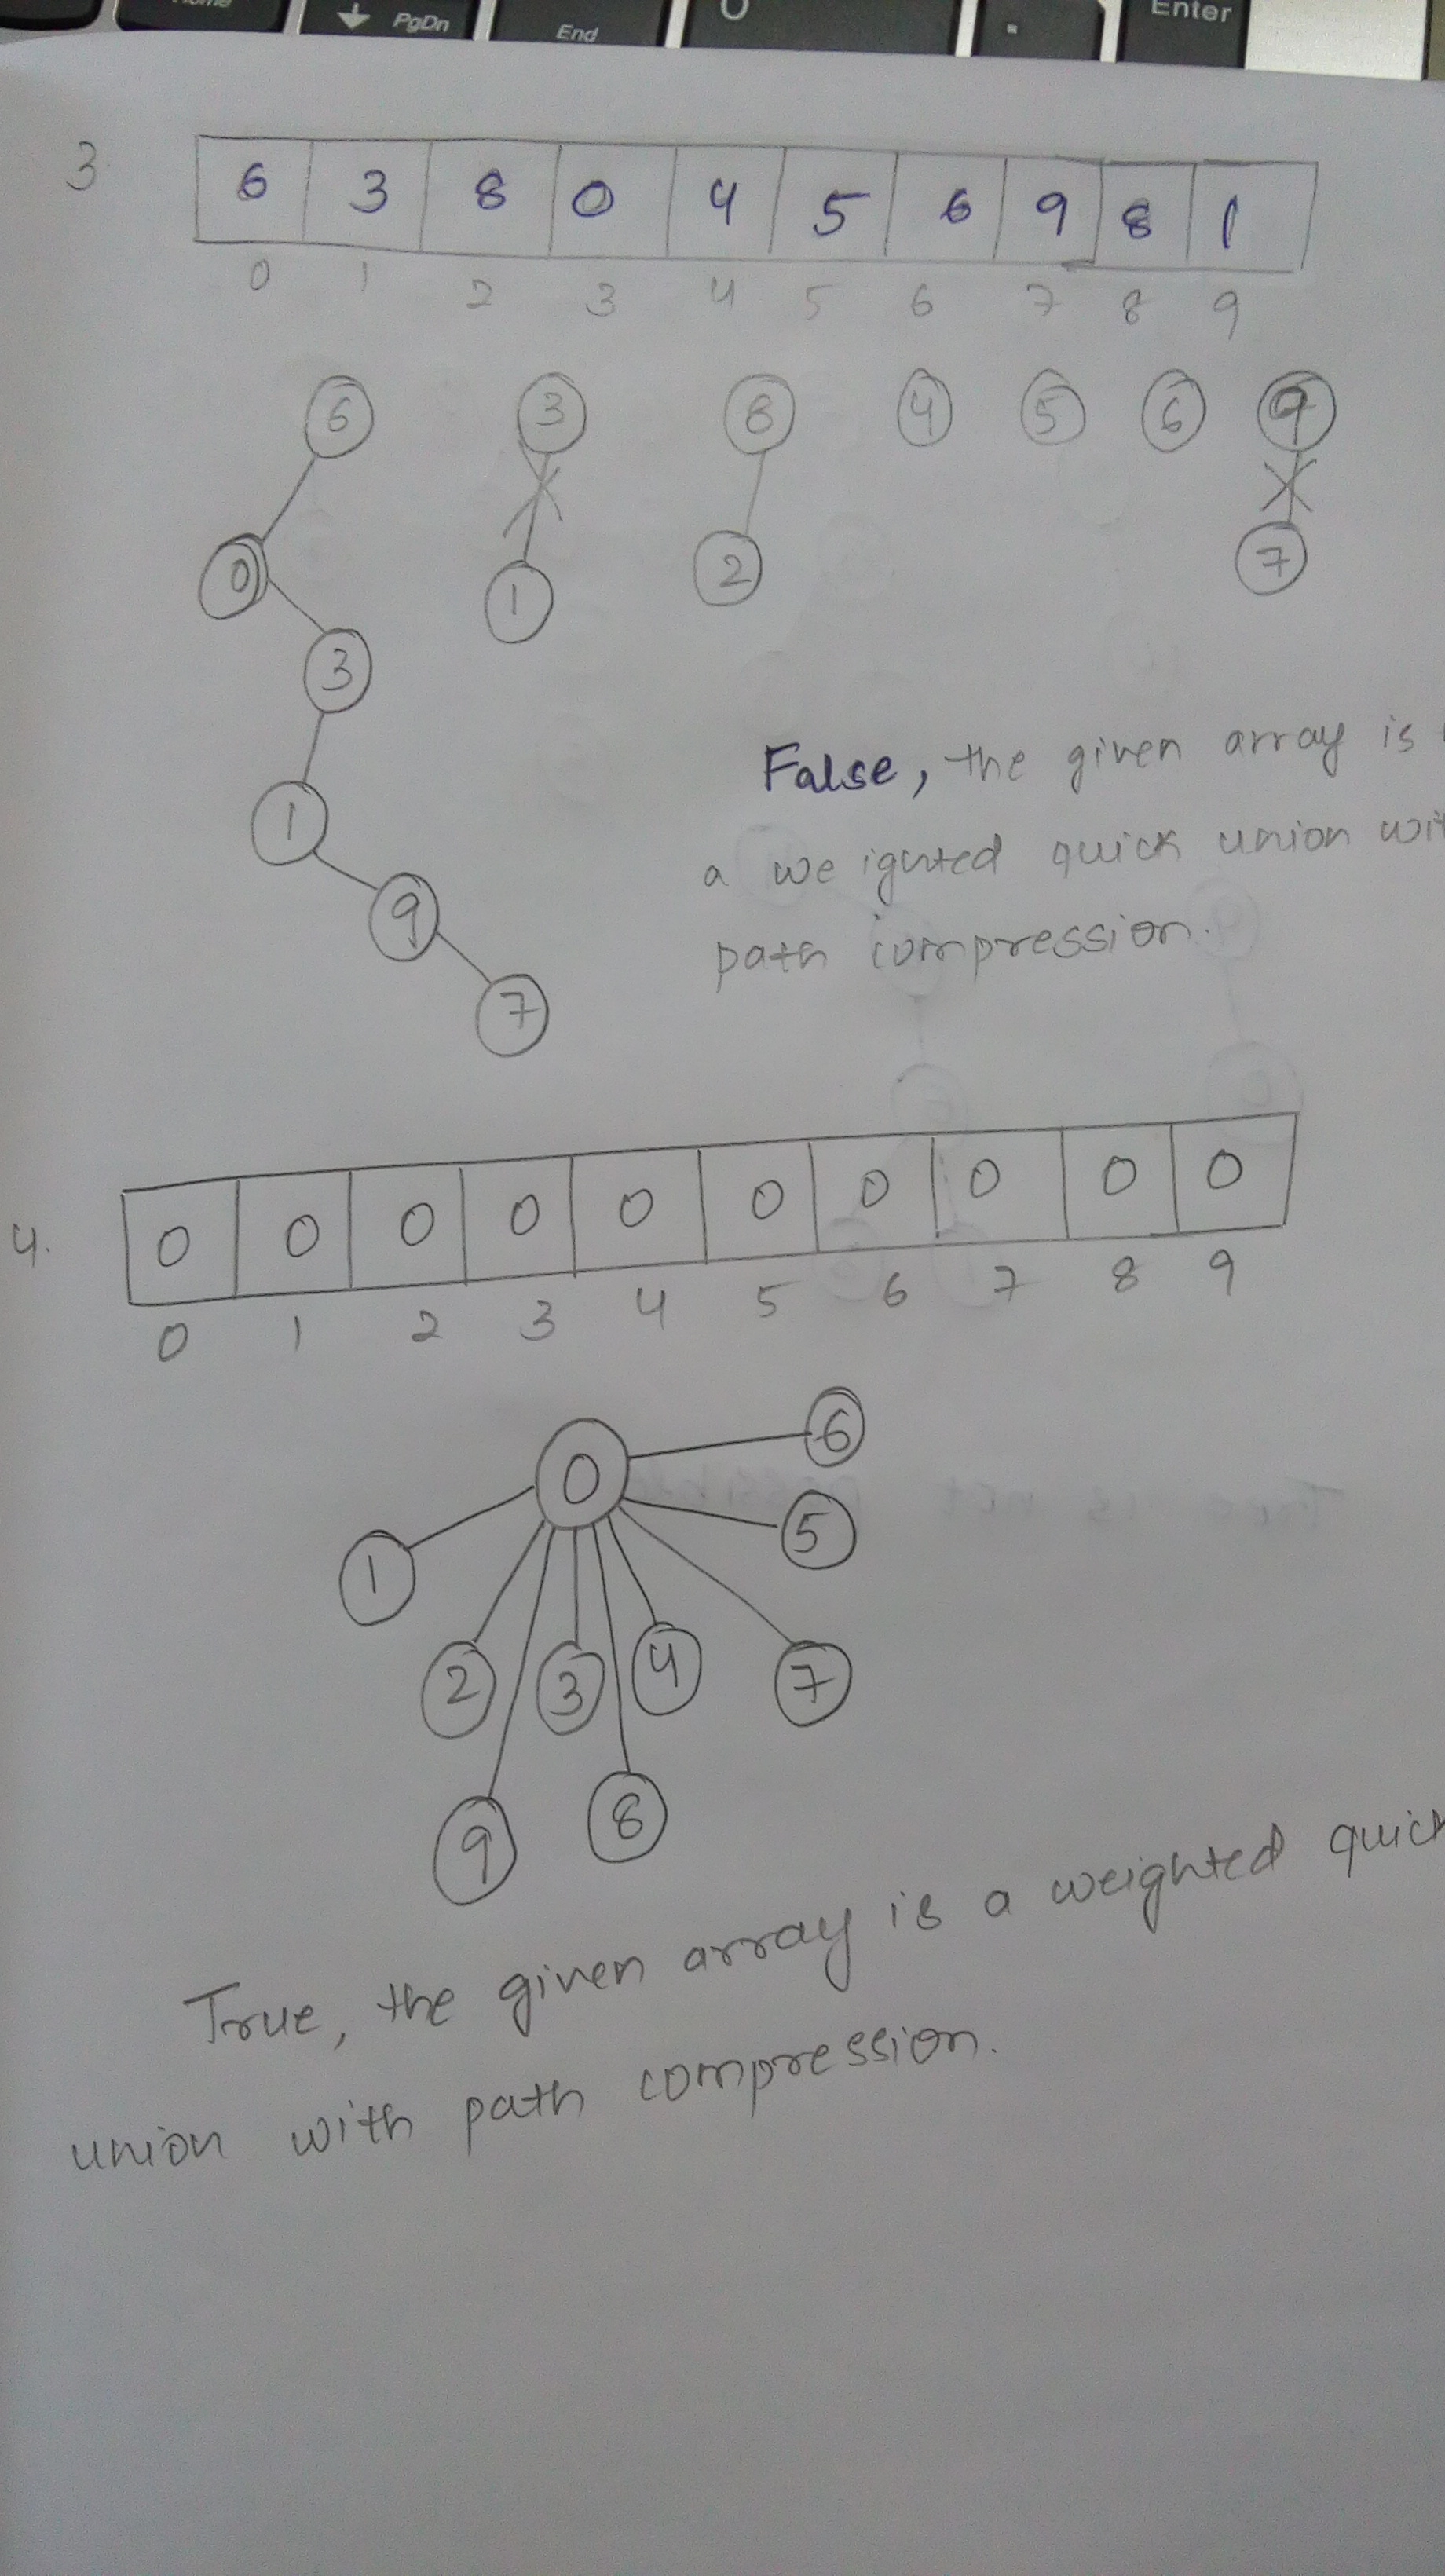 Home
PgDn
End
0
.
Enter
3.
6 3 8 0 4 5 6 9 8 1
0 1 2 3 4 5 6 7 8 9
6 3 8 4 5 6 9
0 1 2 7
3
1
9
7
False, the given array is
a weighted quick union wit
path compression.
4.
0 0 0 0 0 0 0 0 0 0
0 1 2 3 4 5 6 7 8 9
0 6
1 5
2 3 4 7
9 8
True, the given array is a weighted quick
union with path compression.